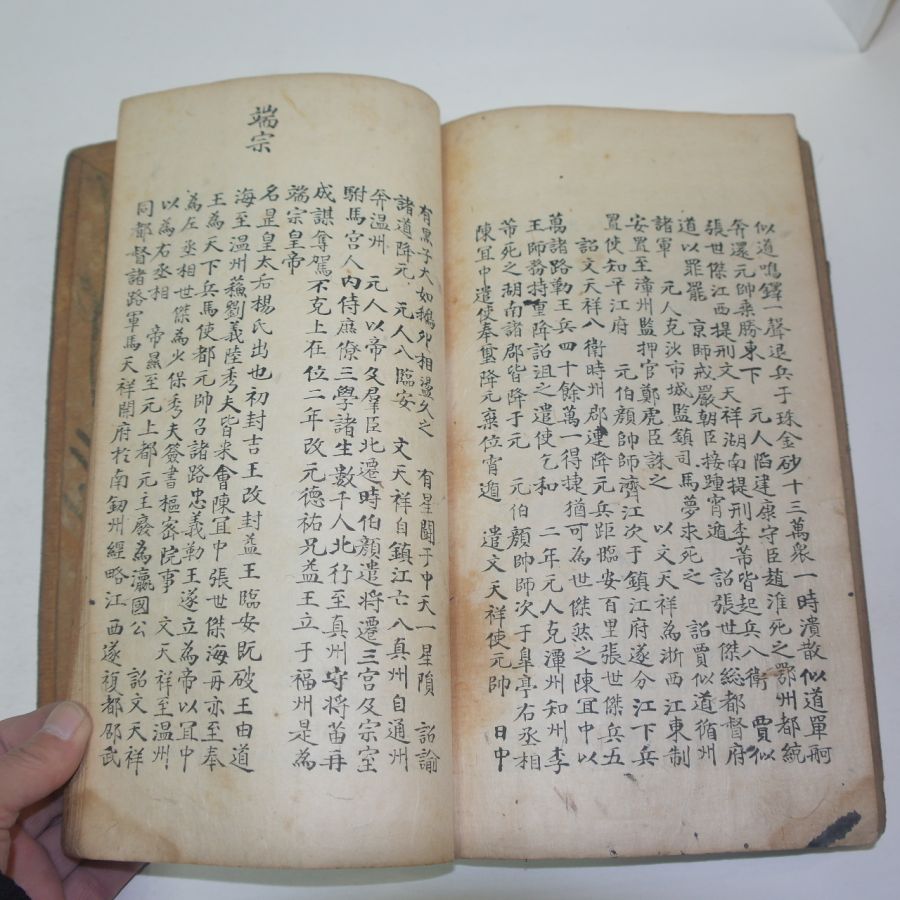 似道鳴鐸一聲退兵于珠金砂十三萬衆一時潰散似道單舸
奔還元帥乘勝東下　元人陷建康守臣趙淮死之鄂州都統
張世傑江西提刑文天祥湖南提刑李芾皆起兵八衛　賈似
道以罪罷　京師戒嚴朝臣接踵宵遁　詔張世傑総都督府
諸軍　元人克沙市城監鎮司馬夢求死之　詔賈似道循州
安置至漳州監押官鄭虎臣誅之　以文天祥為浙西江東制
置使知平江府　元伯顔帥師濟江次于鎮江府遂分江下兵
詔文天祥八衛時州郡連降元兵距臨安百里張世傑兵五
萬諸路勤王兵四十餘萬一得捷猶可為世傑然之陳宜中以
王師務持重降詔沮之遣使乞和　二年元人克潭州知州李
芾死之湖南諸郡皆降于元　元伯顔帥師次于皐亭右丞相
陳宜中遣使奉璽降元棄位宵遁　遣文天祥使元帥　日中
有黒子大如鵝卵相盪久之　有星鬪于中天一星隕　詔諭
諸道降元　元人八臨安　文天祥自鎮江亡八真州自通州
奔温州　元人以帝及羣臣北遷時伯顔遣将遷三宮及宗室
駙馬宮人内侍庶僚三學諸生數千人北行至真州守将苗再
成謀奪駕不克上在位二年改元德祐兄益王立于福州是為
端宗皇帝
端宗
名昰皇太后楊氏出也初封吉王改封益王臨安既破王由道
海至温州蘓劉義陸秀夫皆来會陳宜中張世傑海舟亦至奉
王為天下兵馬使都元帥召諸路忠義勤王遂立為帝以宜中
為左丞相世傑為少保秀夫簽書樞密院事　文天祥至温州
以為右丞相　帝㬎至元上都元主廢為瀛國公　詔文天祥
同都督諸路軍馬天祥開府於南劒州經略江西遂復都邵武